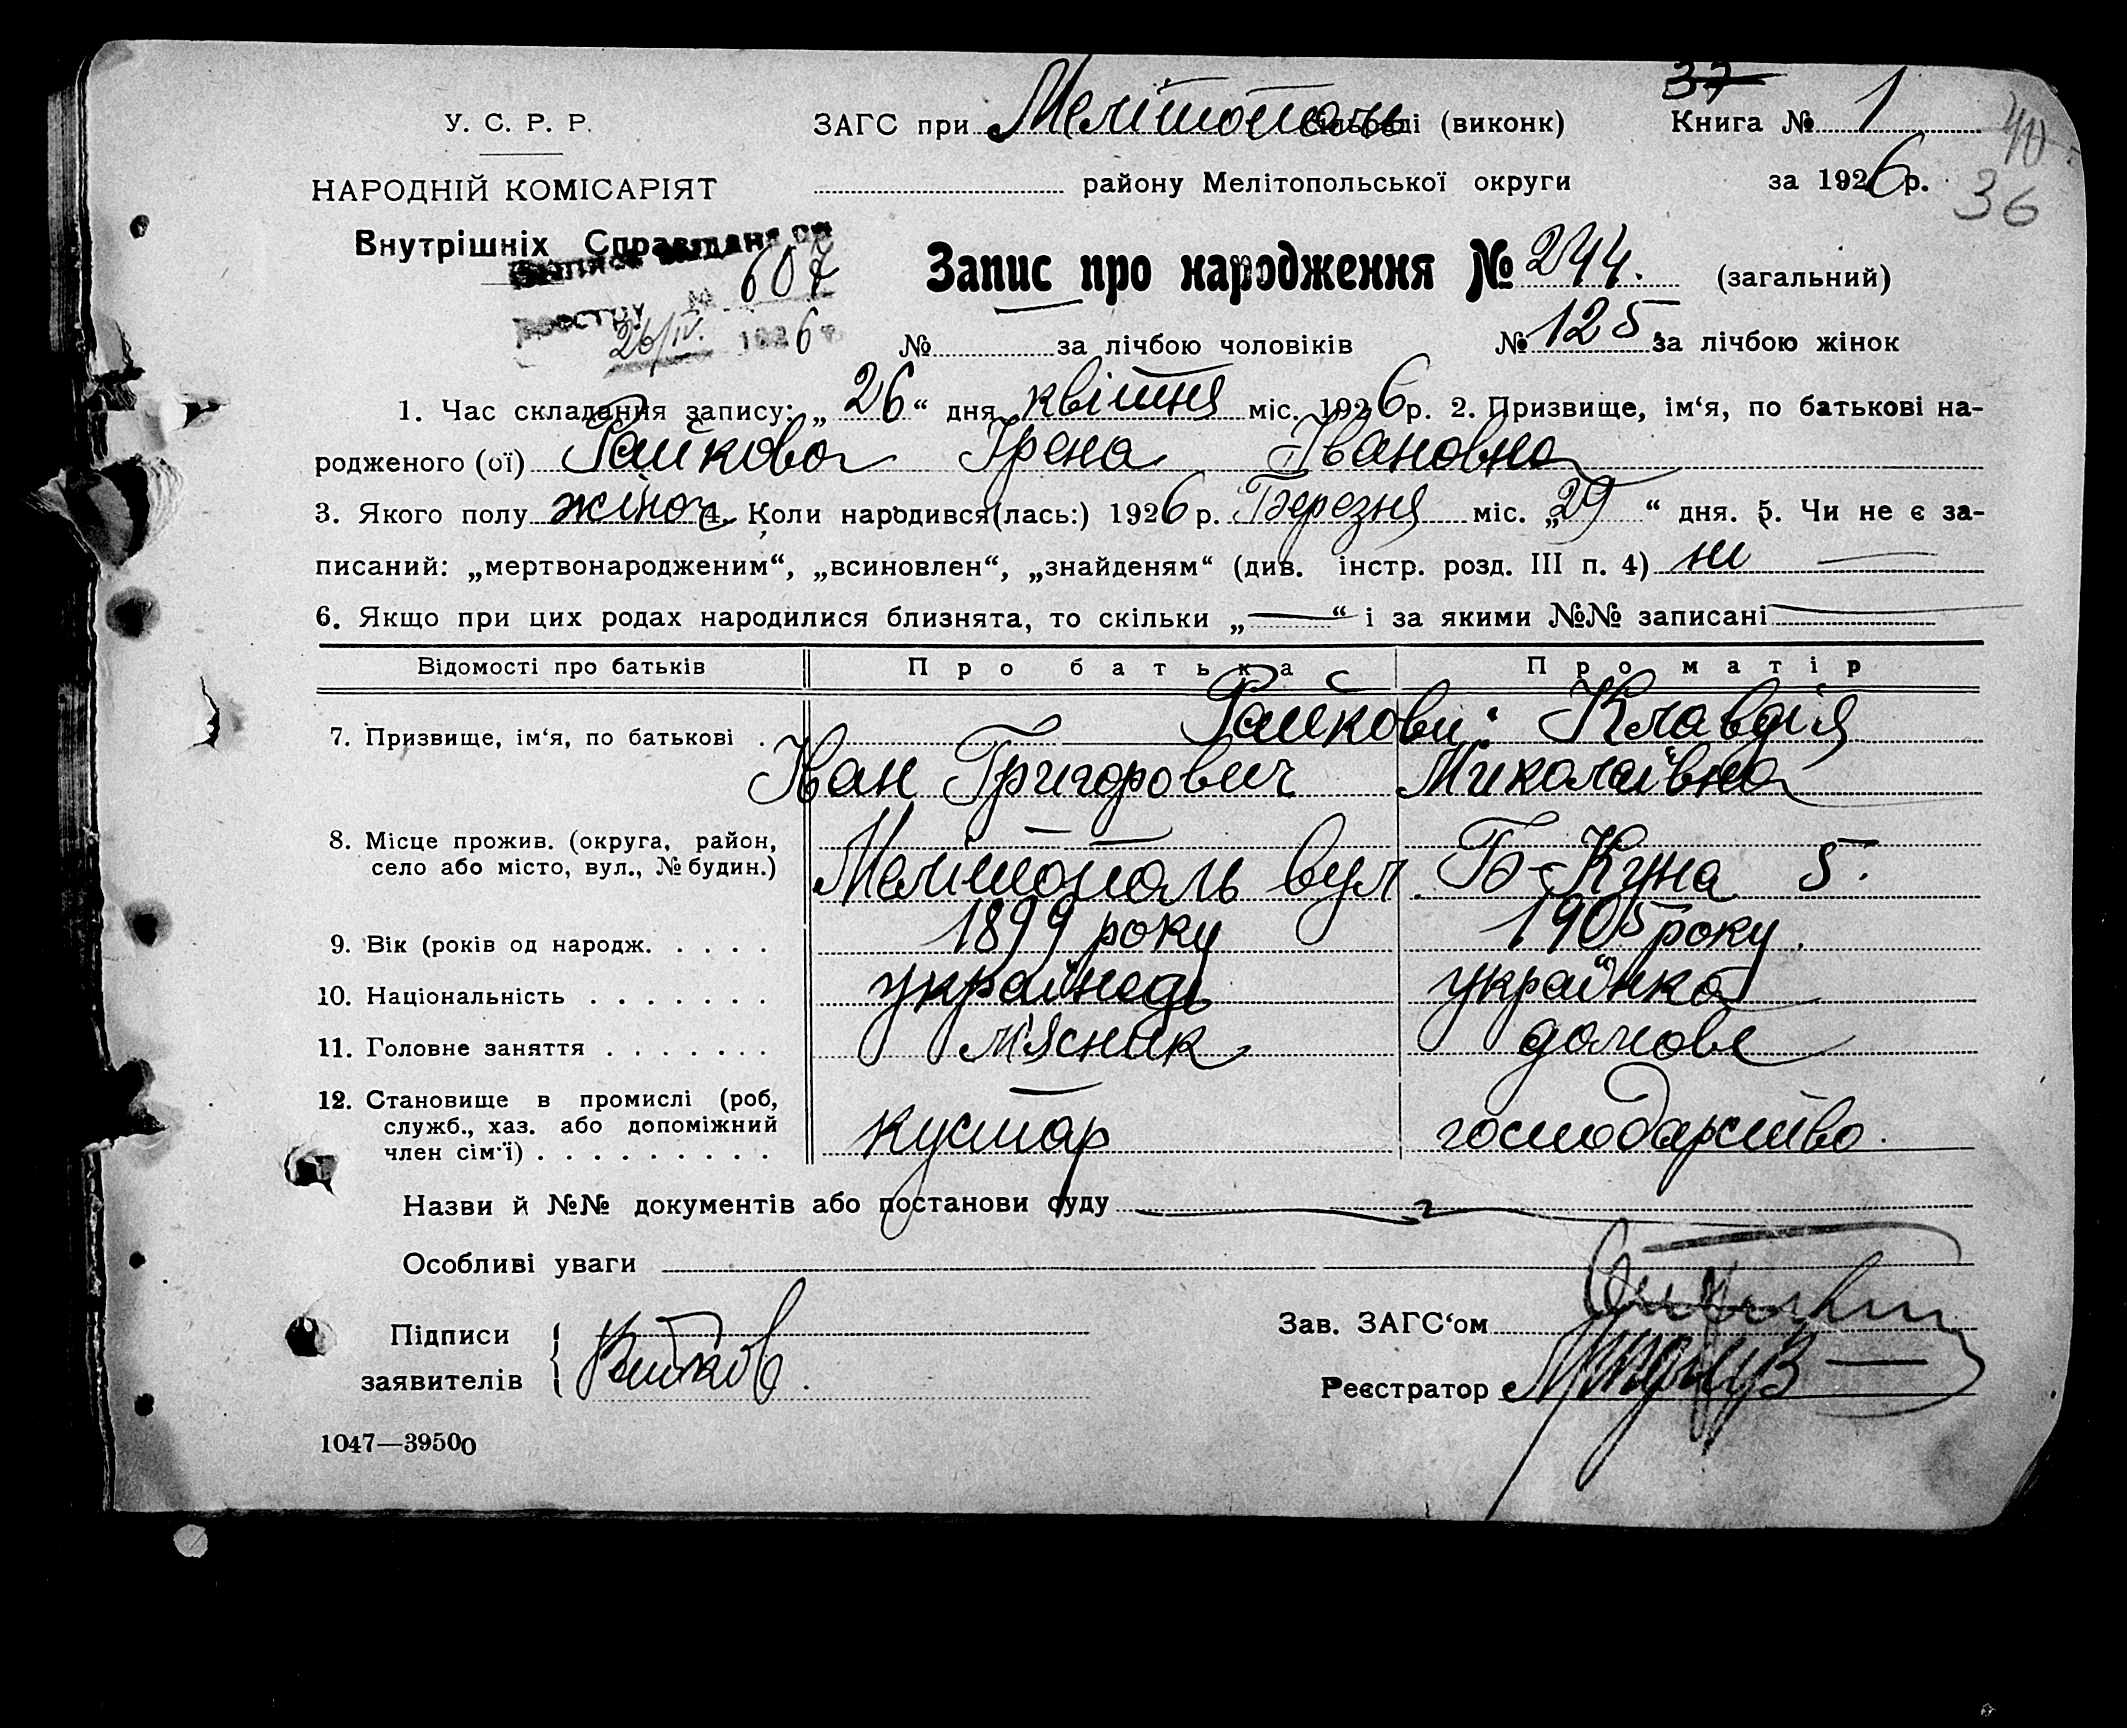 37
У. С. Р. Р. ЗАГС при Мелітополь сільраді (виконк) Книга № 1
40
НАРОДНІЙ КОМІСАРІЯТ району Мелітопольської округи за 1926 р. 36
Внутрішніх Справ
607
Запис про народження № 244. (загальний)
реєстру № 26/IV. 1926 р
№ за лічбою чоловіків № 125 за лічбою жінок
1. Час складання запису: „26“ дня квітня міс. 1926 р. 2. Призвище, ім‘я, по батькові на-
родженого (ої) Райкова Ірена Івановна
3. Якого полу жіноч 4. Коли народився(лась:) 1926 р. Березня міс. „29“ дня. 5. Чи не є за-
писаний: „мертвонародженим“, „всиновлен“, „знайденям“ (див. інстр. розд. III п. 4) ні —
6. Якщо при цих родах народилися близнята, то скільки „—“ і за якими №№ записані —
Відомості про батьків Про батька Про матір
Райкови: Клавдія
7. Призвище, ім‘я, по батькові
Іван Григорович Миколаївна
8. Місце прожив. (округа, район,
село або місто, вул., № будин.) Мелітополь вул. Б-Куна 5.
9. Вік (років од народж. . . . . 1899 року 1905 року.
10. Національність . . . . . . . українець українка
11. Головне заняття . . . . . . . м'ясник домове
12. Становище в промислі (роб,
служб., хаз. або допоміжний
член сім‘ї) . . . . . . . . . кустар господарство.
Назви й №№ документів або постанови суду —
Особливі уваги
Підписи Зав. ЗАГС‘ом
заявителів Райков. Реєстратор
1047—39500